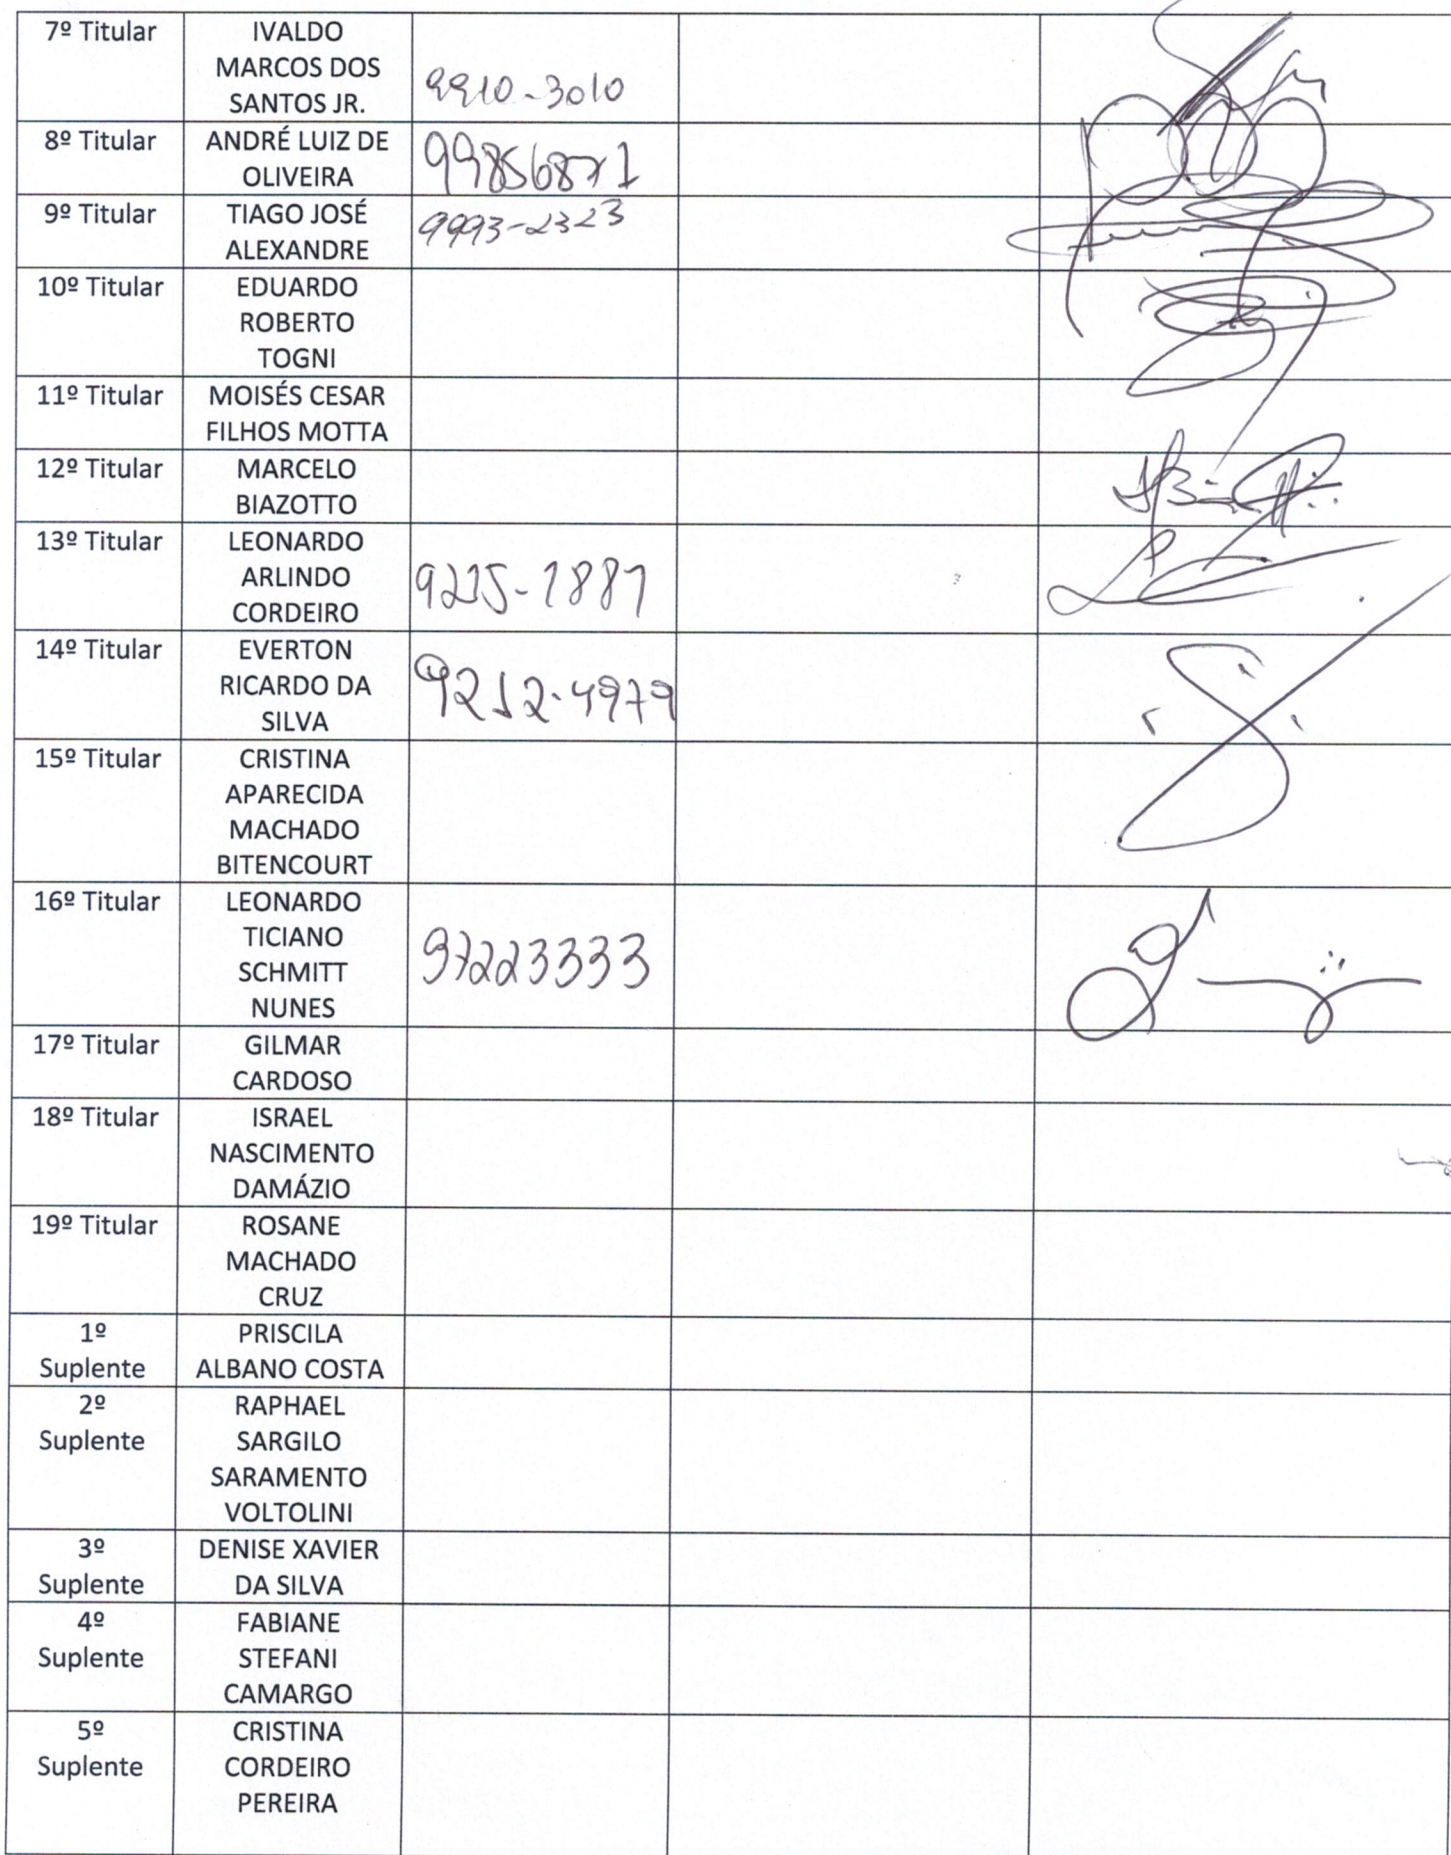 7º Titular
IVALDO
MARCOS DOS
SANTOS JR.
9910-3010
8º Titular
ANDRÉ LUIZ DE
OLIVEIRA
99856871
9º Titular
TIAGO JOSÉ
ALEXANDRE
9993-2323
10º Titular
EDUARDO
ROBERTO
TOGNI
11º Titular
MOISÉS CESAR
FILHOS MOTTA
12º Titular
MARCELO
BIAZOTTO
13º Titular
LEONARDO
ARLINDO
CORDEIRO
9225-1881
14º Titular
EVERTON
RICARDO DA
SILVA
9212-4979
15º Titular
CRISTINA
APARECIDA
MACHADO
BITENCOURT
16º Titular
LEONARDO
TICIANO
SCHMITT
NUNES
97223333
17º Titular
GILMAR
CARDOSO
18º Titular
ISRAEL
NASCIMENTO
DAMÁZIO
19º Titular
ROSANE
MACHADO
CRUZ
1º
Suplente
PRISCILA
ALBANO COSTA
2º
Suplente
RAPHAEL
SARGILO
SARAMENTO
VOLTOLINI
3º
Suplente
DENISE XAVIER
DA SILVA
4º
Suplente
FABIANE
STEFANI
CAMARGO
5º
Suplente
CRISTINA
CORDEIRO
PEREIRA